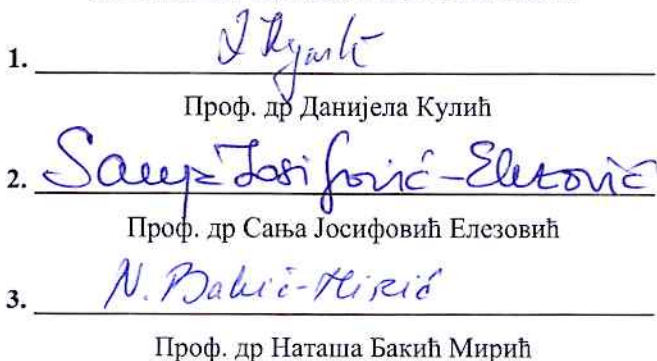 1.
Проф. др Данијела Кулић
2. Sanja Josifović-Elezović
Проф. др Сања Јосифовић Елезовић
3. N. Bakić-Mirić
Проф. др Наташа Бакић Мирић